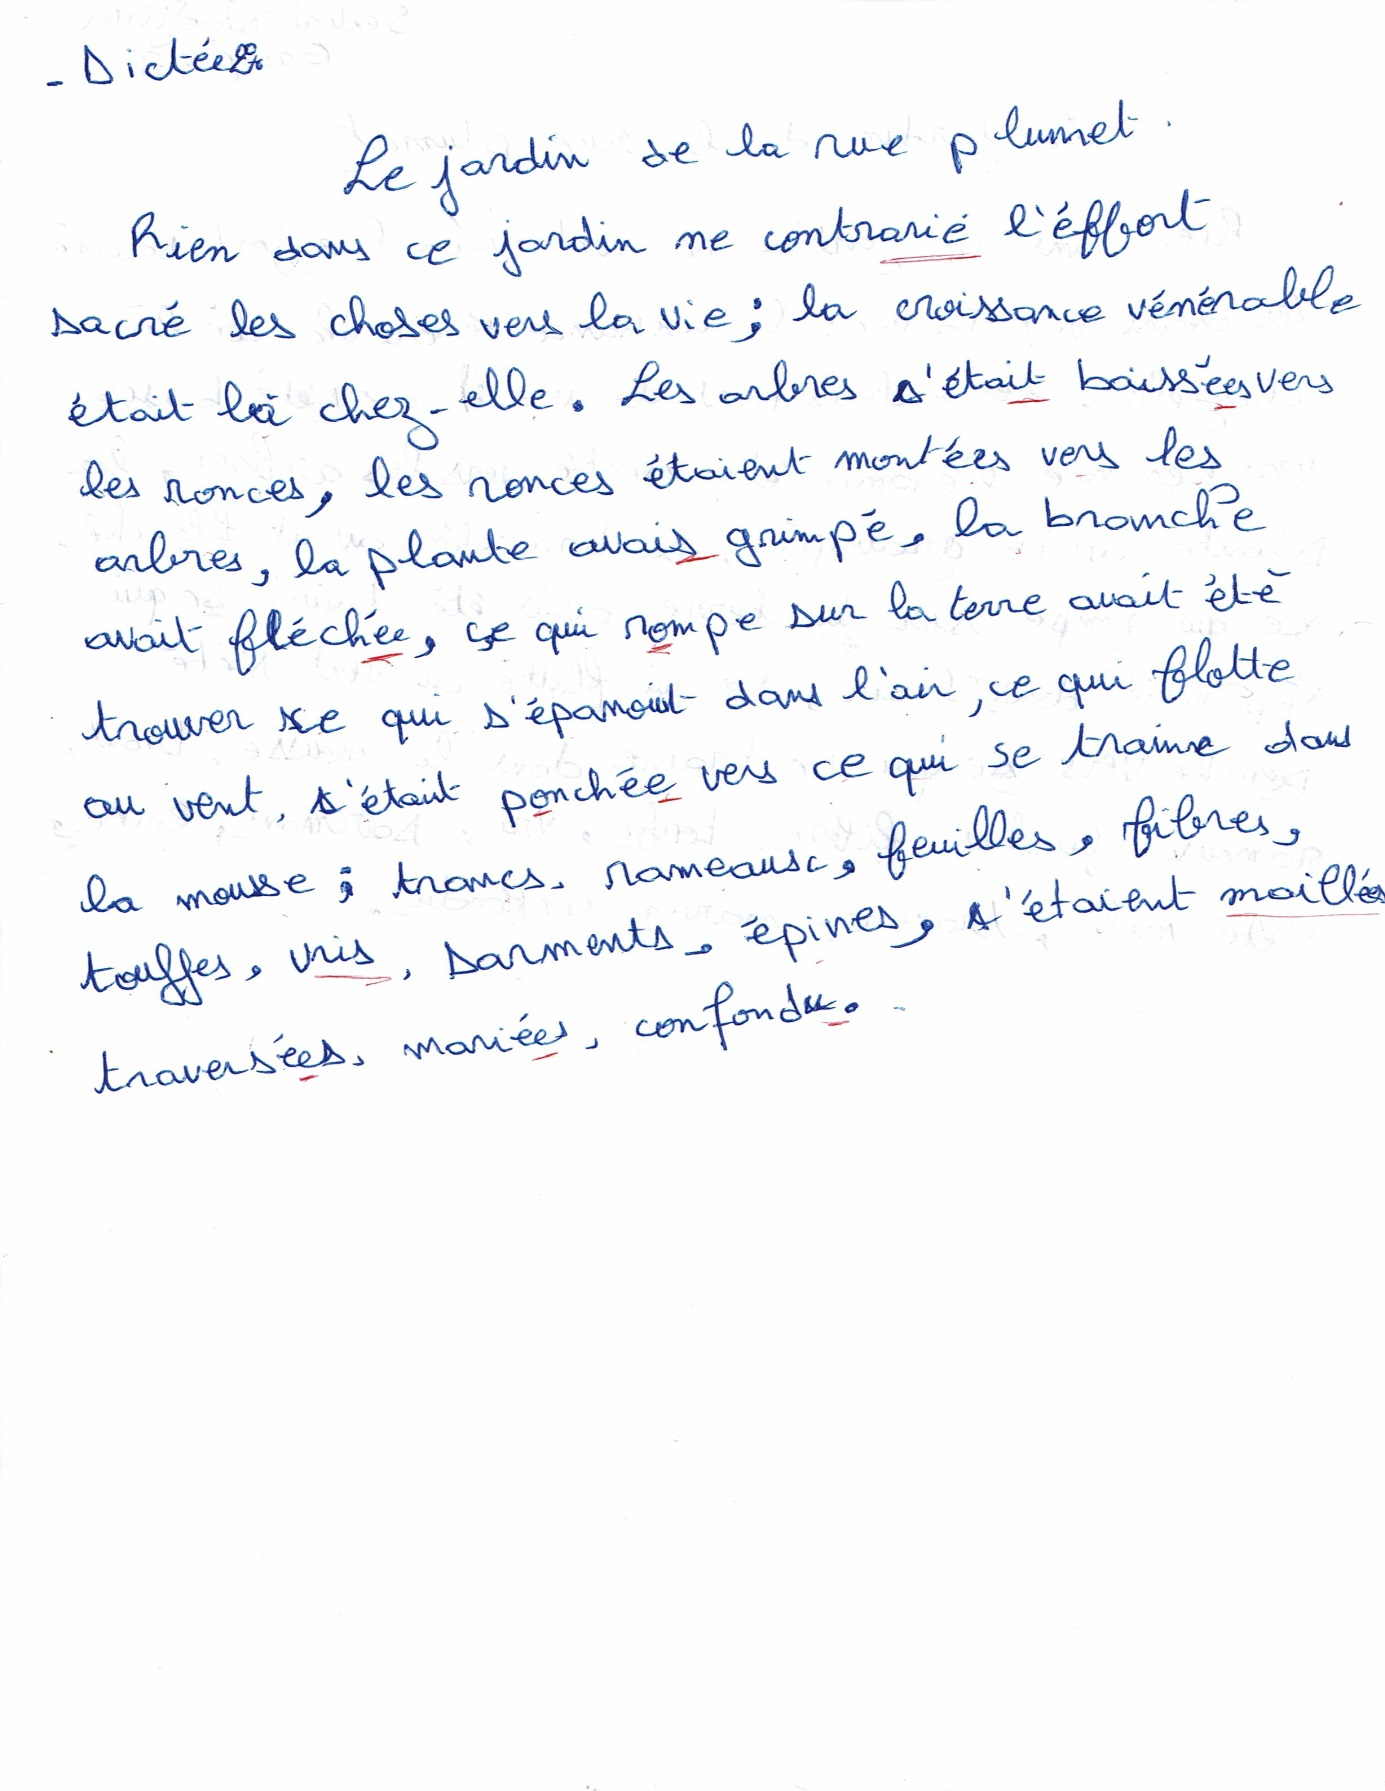 - Dictée
Le jardin de la rue plumet.
Rien dans ce jardin ne contrarié l'éffort
sacré les choses vers la vie ; la croissance vénérable
était là chez-elle. Les arbres s'était baissées vers
les ronces, les ronces étaient montées vers les
arbres, la plante avais grimpé, la branche
avait fléchée, ce qui rompe sur la terre avait été
trouver ce qui s'épanouit dans l'air, ce qui flotte
au vent, s'était ponchée vers ce qui se traine dans
la mousse ; troncs, rameaux, feuilles, fibres,
touffes, vris, sarments, épines, s'étaient maillées
traversées, mariées, confondu.